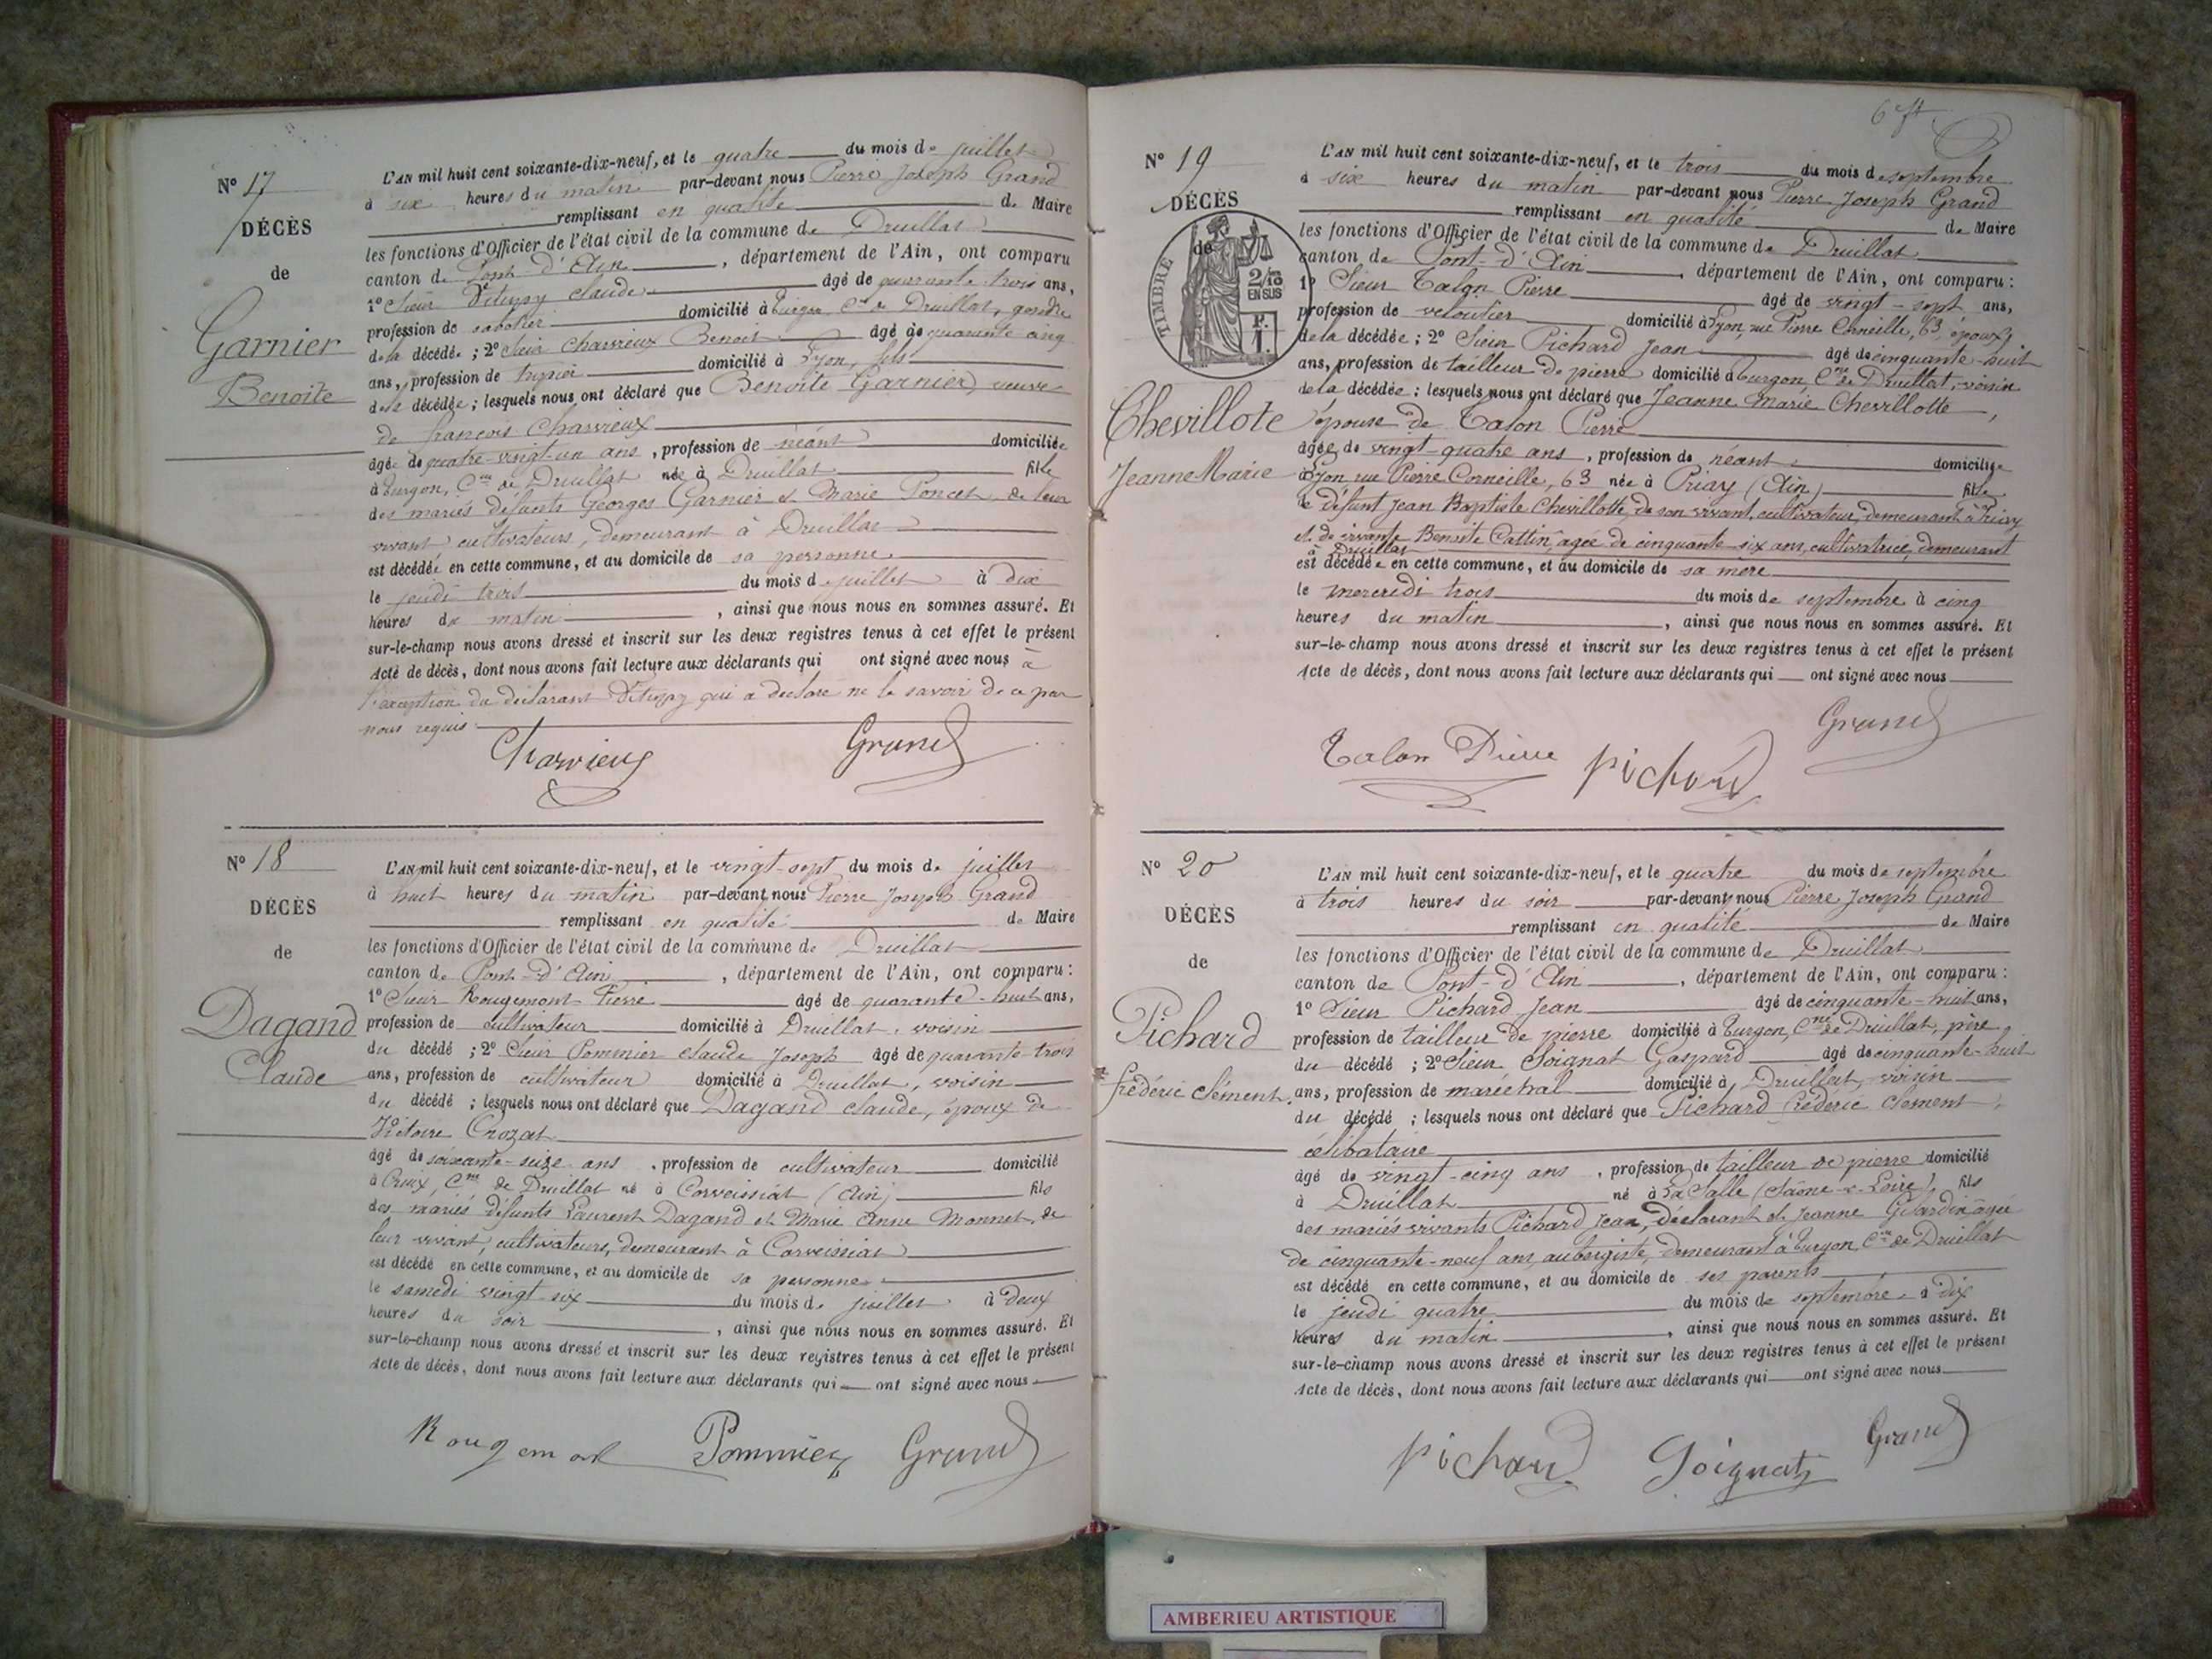 N° 17
DÉCÈS
de
Garnier
Benoite
L'AN mil huit cent soixante-dix-neuf, et le quatre du mois de juillet
à six heures du matin par-devant nous Pierre Joseph Grand
remplissant en qualité de Maire
les fonctions d'Officier de l'état civil de la commune de Druillat
canton de Pont d'Ain, département de l'Ain, ont comparu
1° Sieur claude âgé de quarante-trois ans,
profession de sabotier domicilié à Turgon, Cne de Druillat, gendre
de la décédée ; 2° Sieur Charvieux Benoit âgé de quarante cinq
ans, profession de tripier domicilié à Lyon, fils
de la décédée ; lesquels nous ont déclaré que Benoite Garnier, veuve
de françois Charvieux
âgée de quatre-vingt-un ans, profession de néant domiciliée
à Turgon, Cne de Druillat née à Druillat fille
des mariés défunts Georges Garnier et Marie Poncet, de leur
vivant cultivateurs, demeurant à Druillat
est décédée en cette commune, et au domicile de sa personne
le jeudi trois du mois de juillet à dix
heures du matin, ainsi que nous nous en sommes assuré. Et
sur-le-champ nous avons dressé et inscrit sur les deux registres tenus à cet effet le présent
Acte de décès, dont nous avons fait lecture aux déclarants qui ont signé avec nous à
l'exception du déclarant qui a déclaré ne le savoir de ce par
nous requis
Charvieux Grand
N° 18
DÉCÈS
de
Dagand
Claude
L'AN mil huit cent soixante-dix-neuf, et le vingt-sept du mois de juillet
à huit heures du matin par-devant nous Pierre Joseph Grand
remplissant en qualité de Maire
les fonctions d'Officier de l'état civil de la commune de Druillat
canton de Pont-d'Ain, département de l'Ain, ont comparu :
1° Sieur Rougemont Pierre âgé de quarante-huit ans,
profession de cultivateur domicilié à Druillat, voisin
du décédé ; 2° Sieur Pommier claude Joseph âgé de quarante-trois
ans, profession de cultivateur domicilié à Druillat, voisin
du décédé ; lesquels nous ont déclaré que Dagand claude, époux de
Victoire Crozat
âgé de soixante-seize ans, profession de cultivateur domicilié
à Cne de Druillat né à Corveissiat (Ain) fils
des mariés défunts Laurent Dagand et Marie Anne Monnet, de
leur vivant, cultivateurs, demeurant à Corveissiat
est décédé en cette commune, et au domicile de sa personne
le samedi vingt-six du mois de juillet à deux
heures du soir, ainsi que nous nous en sommes assuré. Et
sur-le-champ nous avons dressé et inscrit sur les deux registres tenus à cet effet le présent
Acte de décès, dont nous avons fait lecture aux déclarants qui ont signé avec nous
Rougemont Pommier Grand
N° 19
DÉCÈS
de
TIMBRE
2/10
EN SUS
Chevillote
Jeanne Marie
L'AN mil huit cent soixante-dix-neuf, et le trois du mois de septembre
à six heures du matin par-devant nous Pierre Joseph Grand
remplissant en qualité de Maire
les fonctions d'Officier de l'état civil de la commune de Druillat
canton de Pont-d'Ain, département de l'Ain, ont comparu :
1° Sieur Talon Pierre âgé de vingt-sept ans,
profession de veloutier domicilié à Lyon, rue Pierre Corneille, 63, époux
de la décédée ; 2° Sieur Pichard Jean âgé de cinquante-huit
ans, profession de tailleur de pierre domicilié à Turgon, Cne de Druillat, voisin
de la décédée : lesquels nous ont déclaré que Jeanne Marie Chevillotte,
épouse de Talon Pierre
âgée de vingt-quatre ans, profession de néant domiciliée
à Lyon rue Pierre Corneille, 63 née à Priay (Ain) fille
de défunt Jean Baptiste Chevillotte, de son vivant, cultivateur, demeurant à Priay
et de vivante Benoite Cattin, agée de cinquante-six ans, cultivatrice, demeurant
à Druillat
est décédée en cette commune, et au domicile de sa mère
le mercredi trois du mois de septembre à cinq
heures du matin, ainsi que nous nous en sommes assuré. Et
sur-le-champ nous avons dressé et inscrit sur les deux registres tenus à cet effet le présent
Acte de décès, dont nous avons fait lecture aux déclarants qui ont signé avec nous
Grand
Talon Pierre pichard
N° 20
DÉCÈS
de
Pichard
frédéric Clément
L'AN mil huit cent soixante-dix-neuf, et le quatre du mois de septembre
à trois heures du soir par-devant nous Pierre Joseph Grand
remplissant en qualité de Maire
les fonctions d'Officier de l'état civil de la commune de Druillat
canton de Pont-d'Ain, département de l'Ain, ont comparu :
1° Sieur Pichard Jean âgé de cinquante-huit ans,
profession de tailleur de pierre domicilié à Turgon, Cne de Druillat, père
du décédé ; 2° Sieur Goignat Gaspard âgé de cinquante-huit
ans, profession de maréchal domicilié à Druillat, voisin
du décédé ; lesquels nous ont déclaré que Pichard fréderic Clément,
célibataire
âgé de vingt-cinq ans, profession de tailleur de pierre domicilié
à Druillat né à La Salle (Saône-&-Loire), fils
des mariés vivants Pichard Jean, déclarant et Jeanne agée
de cinquante-neuf ans, aubergiste, demeurant à Turgon, Cne de Druillat
est décédé en cette commune, et au domicile de ses parents
le jeudi quatre du mois de septembre à dix
heures du matin, ainsi que nous nous en sommes assuré. Et
sur-le-champ nous avons dressé et inscrit sur les deux registres tenus à cet effet le présent
Acte de décès, dont nous avons fait lecture aux déclarants qui ont signé avec nous
pichard Goignat Grand
AMBERIEU ARTISTIQUE